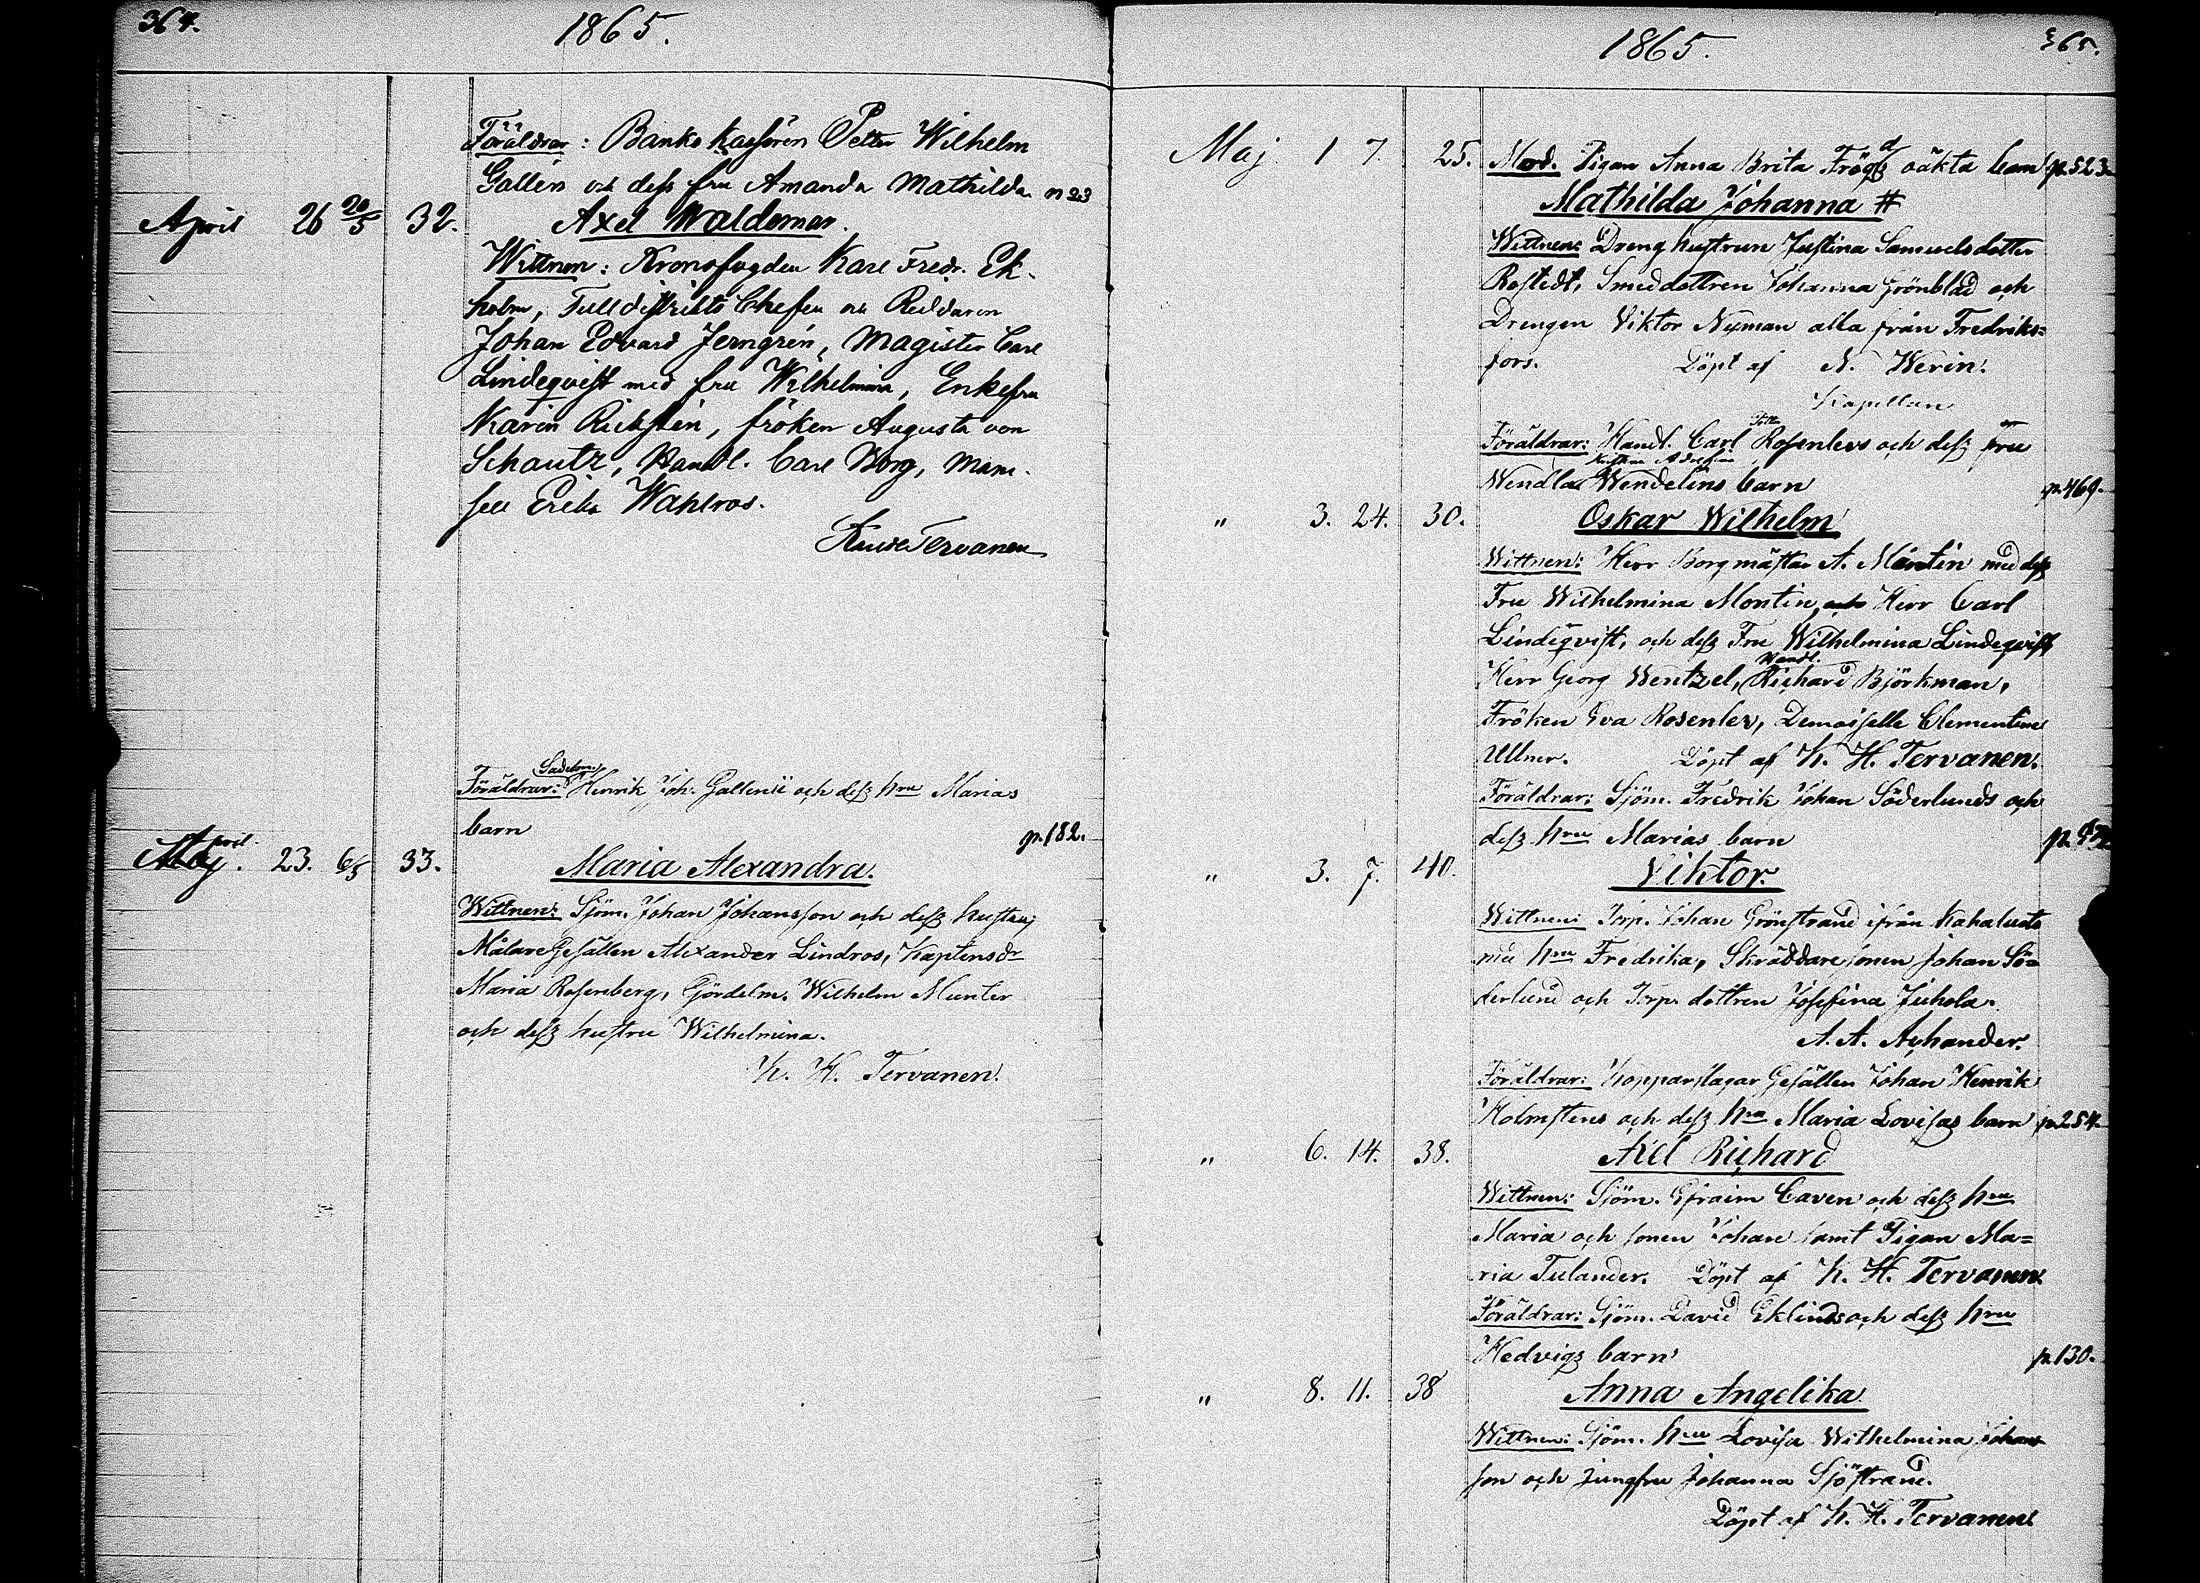 364.
1865.
Föräldrar: Banko Kassören Petter Wilhelm
Gallén och dess fru Amanda Mathilda n 23
April 26 20/5 32. Axel Waldemar.
Wittnen: Kronofogden Karl Fredr. Ek-
holm, Tulldistrikts Chefen och Riddaren
Johan Edvard Jerngrén, Magister Carl
Lindeqvist med fru Wilhelmina, Enkefru
Karin Rickstén, fröken Augusta von
Schantz, Handl. Carl Borg, Mam-
sell Erika Wahlros.
Tervanen
Sadelm.
Föräldrar: Henrik Joh. Gallenii och dess hru Marias
barn p. 182.
April
Maj. 23. 6/5 33. Maria Alexandra.
Wittnen: Sjöm. Johan Johansson och dess hustru,
Målare Gesällen Alexander Lindros, Kaptensdr
Maria Rosenberg, Gördelm. Wilhelm Munter
och dess hustru Wilhelmina.
K. H. Tervanen.
1865. 365.
Maj 1 7. 25. Mod. Pigan Anna Brita oäkta barn p. 523.
Mathilda Johanna #
Wittnen: Dreng hustrun Justina Samuelsdotter
Rostedt, Smeddottren Johanna Grönblad och
Drengen Viktor Nyman alla från Fredriks=
fors. Döpt af N. Werin.
Kapellan
Föräldrar: Handl. Carl Rosenlevs och dess fru
Wendla Wendelins barn p. 469.
" 3. 24. 30. Oskar Wilhelm
Wittnen: Herr Borgmästar A. Montin med dess
Fru Wilhelmina Montin, Herr Carl
Lindeqvist, och dess Fru Wilhelmina Lindeqvist
Handl.
Herr Georg Wentzel, Richard Björkman,
Fröken Eva Rosenlev, Demoiselle Clementine
Ullner. Döpt af K. H. Tervanen.
Föräldrar: Sjöm. Fredrik Johan Söderlunds och
dess hru Marias barn
" 3. 7. 40. Viktor.
Wittnen: Torp. Johan Grönstrand ifrån Kahaluoto
med hru Fredrika, Skräddaresonen Johan Sö=
derlund och Torp. dottren Josefina Juhola.
A. A. Achander.
Föräldrar: Kopparslagar Gesällen Johan Henrik
Holmstens och dess hru Maria Lovisas barn p. 254.
" 6. 14. 38. Axel Richard
Wittnen: Sjöm. Efraim Caven och dess hru
Maria och sonen Johan samt Pigan Ma=
ria Tulander. Döpt af K. H. Tervanen.
Föräldrar: Sjöm. David Eklinds och dess hru
Hedvigs barn p. 130.
" 8. 11. 38 Anna Angelika
Wittnen: Sjöm. hru Lovisa Wilhelmina Johans
son och jungfru Johanna Sjöstrand.
Döpt af K. H. Tervanen.